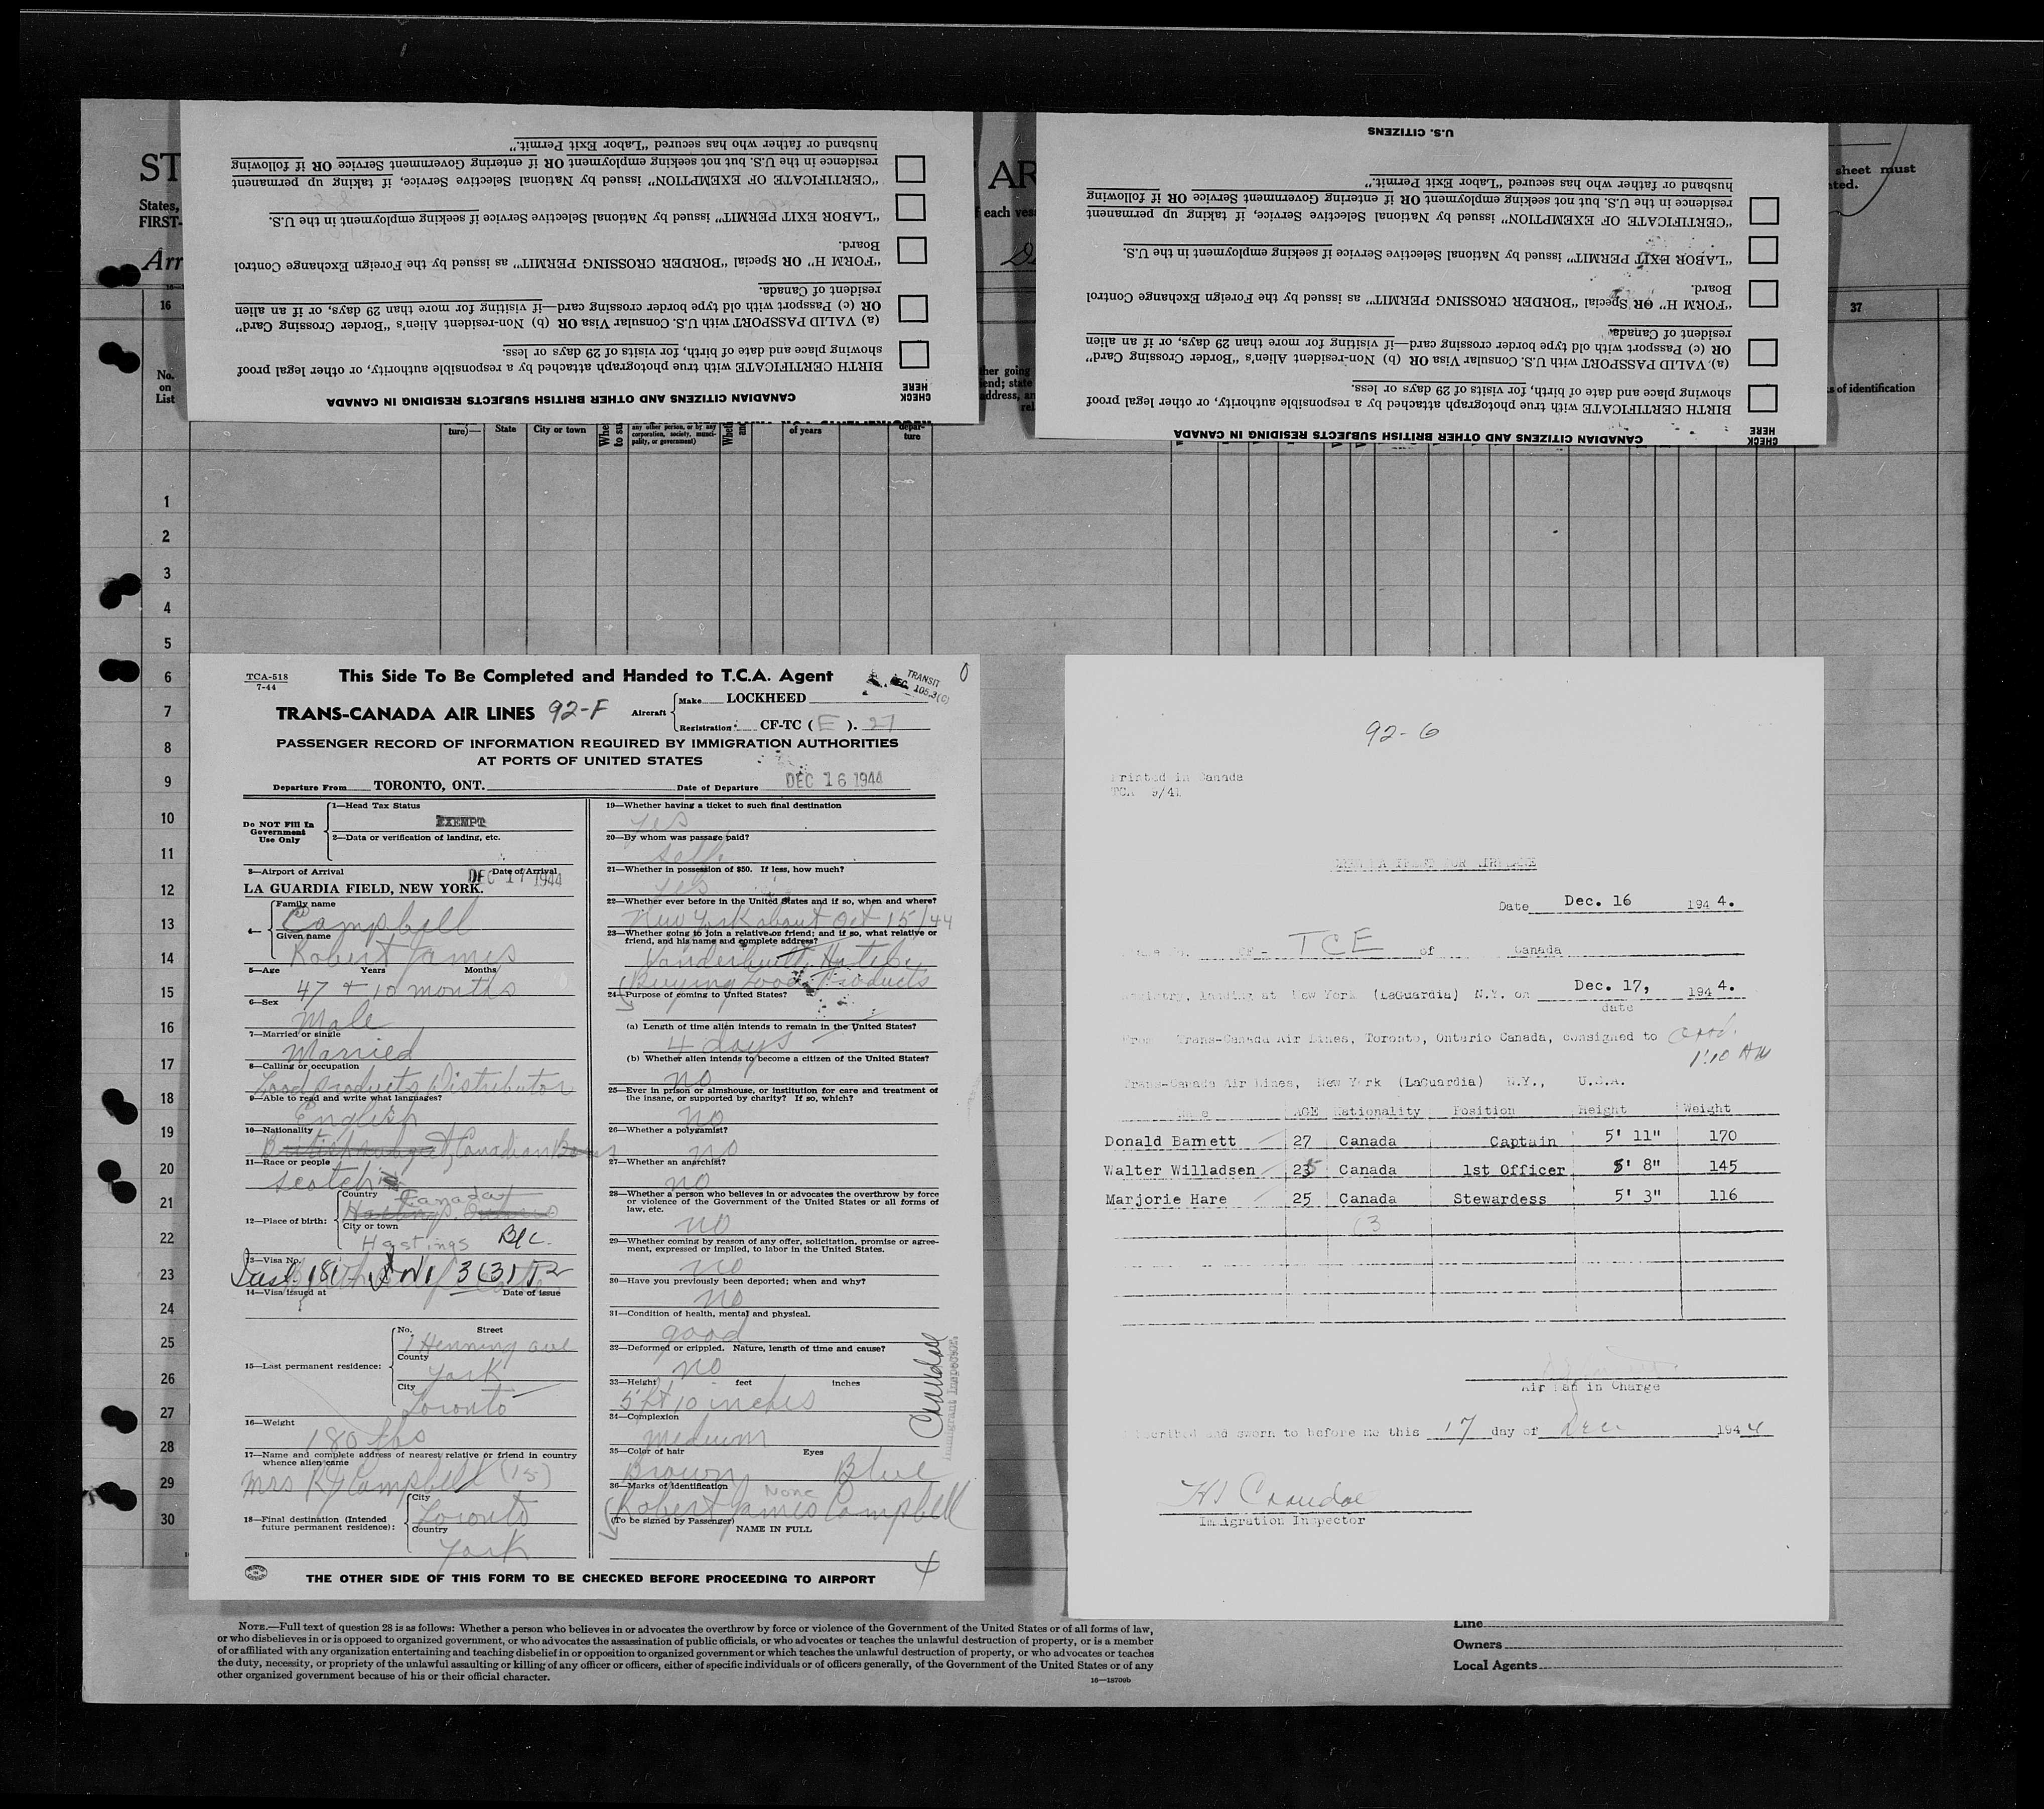 U.S. CITIZENS
husband or father who has secured "Labor Exit Permit."
residence in the U.S. but not seeking employment OR if entering Government Service OR if following
"CERTIFICATE OF EXEMPTION" issued by National Selective Service, if taking up permanent
"LABOR EXIT PERMIT" issued by National Selective Service if seeking employment in the U.S.
Board.
"FORM H" OR Special "BORDER CROSSING PERMIT" as issued by the Foreign Exchange Control
resident of Canada.
OR (c) Passport with old type border crossing card—if visiting for more than 29 days, or if an alien
(a) VALID PASSPORT with U.S. Consular Visa OR (b) Non-resident Alien's "Border Crossing Card"
showing place and date of birth, for visits of 29 days or less.
BIRTH CERTIFICATE with true photograph attached by a responsible authority, or other legal proof
CHECK HERE
CANADIAN CITIZENS AND OTHER BRITISH SUBJECTS RESIDING IN CANADA
husband or father who has secured "Labor Exit Permit."
residence in the U.S. but not seeking employment OR if entering Government Service OR if following
"CERTIFICATE OF EXEMPTION" issued by National Selective Service, if taking up permanent
"LABOR EXIT PERMIT" issued by National Selective Service if seeking employment in the U.S.
Board.
"FORM H" OR Special "BORDER CROSSING PERMIT" as issued by the Foreign Exchange Control
resident of Canada.
OR (c) Passport with old type border crossing card—if visiting for more than 29 days, or if an alien
(a) VALID PASSPORT with U.S. Consular Visa OR (b) Non-resident Alien's "Border Crossing Card"
showing place and date of birth, for visits of 29 days or less.
BIRTH CERTIFICATE with true photograph attached by a responsible authority, or other legal proof
CHECK HERE
CANADIAN CITIZENS AND OTHER BRITISH SUBJECTS RESIDING IN CANADA
ST
States,
FIRST-
Arr
AR
f each ves
sheet must
16
37
No.
on
List
s of identification
State
City or town
of years
1
2
3
4
5
6
7
8
9
10
11
12
13
14
15
16
17
18
19
20
21
22
23
24
25
26
27
28
29
30
TCA-518
7-44
This Side To Be Completed and Handed to T.C.A. Agent
TRANSIT
TRANS-CANADA AIR LINES 92-F
Aircraft
Make LOCKHEED
Registration: CF-TC (E). 27
PASSENGER RECORD OF INFORMATION REQUIRED BY IMMIGRATION AUTHORITIES
AT PORTS OF UNITED STATES
Departure From TORONTO, ONT. Date of Departure DEC 16 1944
Do NOT Fill In
Government
Use Only
1—Head Tax Status
EXEMPT
2—Data or verification of landing, etc.
3—Airport of Arrival Date of Arrival
LA GUARDIA FIELD, NEW YORK. DEC 17 1944
4—
Family name
Campbell
Given name
Robert James
5—Age Years Months
47 + 10 months
6—Sex
Male
7—Married or single
Married
8—Calling or occupation
Food Products Distributor
9—Able to read and write what languages?
English
10—Nationality
British subject, Canadian Born
11—Race or people
Scotch
12—Place of birth:
Country Canada
Hastings
City or town
Hastings B/C.
13—Visa No.
14—Visa issued at Date of issue
15—Last permanent residence:
No. Street
1 Henning ave
County
York
City
Toronto
16—Weight
180 lbs
17—Name and complete address of nearest relative or friend in country
whence alien came
Mrs R J Campbell (15)
18—Final destination (Intended
future permanent residence):
City
Toronto
Country
York
19—Whether having a ticket to such final destination
yes
20—By whom was passage paid?
self.
21—Whether in possession of $50. If less, how much?
yes
22—Whether ever before in the United States and if so, when and where?
New York about Oct 15/44
23—Whether going to join a relative or friend; and if so, what relative or
friend, and his name and complete address?
Vanderbuilt Hotel
Buying Food Products
24—Purpose of coming to United States?
(a) Length of time alien intends to remain in the United States?
4 days
(b) Whether alien intends to become a citizen of the United States?
no
25—Ever in prison or almshouse, or institution for care and treatment of
the insane, or supported by charity? If so, which?
no
26—Whether a polygamist?
no
27—Whether an anarchist?
no
28—Whether a person who believes in or advocates the overthrow by force
or violence of the Government of the United States or all forms of
law, etc.
no
29—Whether coming by reason of any offer, solicitation, promise or agree-
ment, expressed or implied, to labor in the United States.
no
30—Have you previously been deported; when and why?
no
31—Condition of health, mental and physical.
good
32—Deformed or crippled. Nature, length of time and cause?
no
33—Height feet inches
5 ft 10 inches
34—Complexion
medium
35—Color of hair Eyes
Brown Blue
36—Marks of identification None
Robert James Campbell
(To be signed by Passenger)
NAME IN FULL
Crandal
Immigrant Inspector.
THE OTHER SIDE OF THIS FORM TO BE CHECKED BEFORE PROCEEDING TO AIRPORT
4
92-G
Printed in Canada
TCA 9/41
Date Dec. 16 194 4.
CF - TCE of Canada
Registry, landing at New York (LaGuardia) N.Y. on Dec. 17, 194 4.
date
From Trans-Canada Air Lines, Toronto, Ontario Canada, consigned to
1:10 AM
Trans-Canada Air Lines, New York (LaGuardia) N.Y., U.S.A.
Name AGE Nationality Position Height Weight
Donald Barnett 27 Canada Captain 5' 11" 170
Walter Willadsen 25 Canada 1st Officer 5' 8" 145
Marjorie Hare 25 Canada Stewardess 5' 3" 116
(3
Air Man in Charge
Subscribed and sworn to before me this 17 day of Dec 194 4
HS Crandal
Immigration Inspector
NOTE.—Full text of question 28 is as follows: Whether a person who believes in or advocates the overthrow by force or violence of the Government of the United States or of all forms of law,
or who disbelieves in or is opposed to organized government, or who advocates the assassination of public officials, or who advocates or teaches the unlawful destruction of property, or is a member
of or affiliated with any organization entertaining and teaching disbelief in or opposition to organized government or which teaches the unlawful destruction of property, or who advocates or teaches
the duty, necessity, or propriety of the unlawful assaulting or killing of any officer or officers, either of specific individuals or of officers generally, of the Government of the United States or of any
other organized government because of his or their official character.
16—18709b
Line
Owners
Local Agents